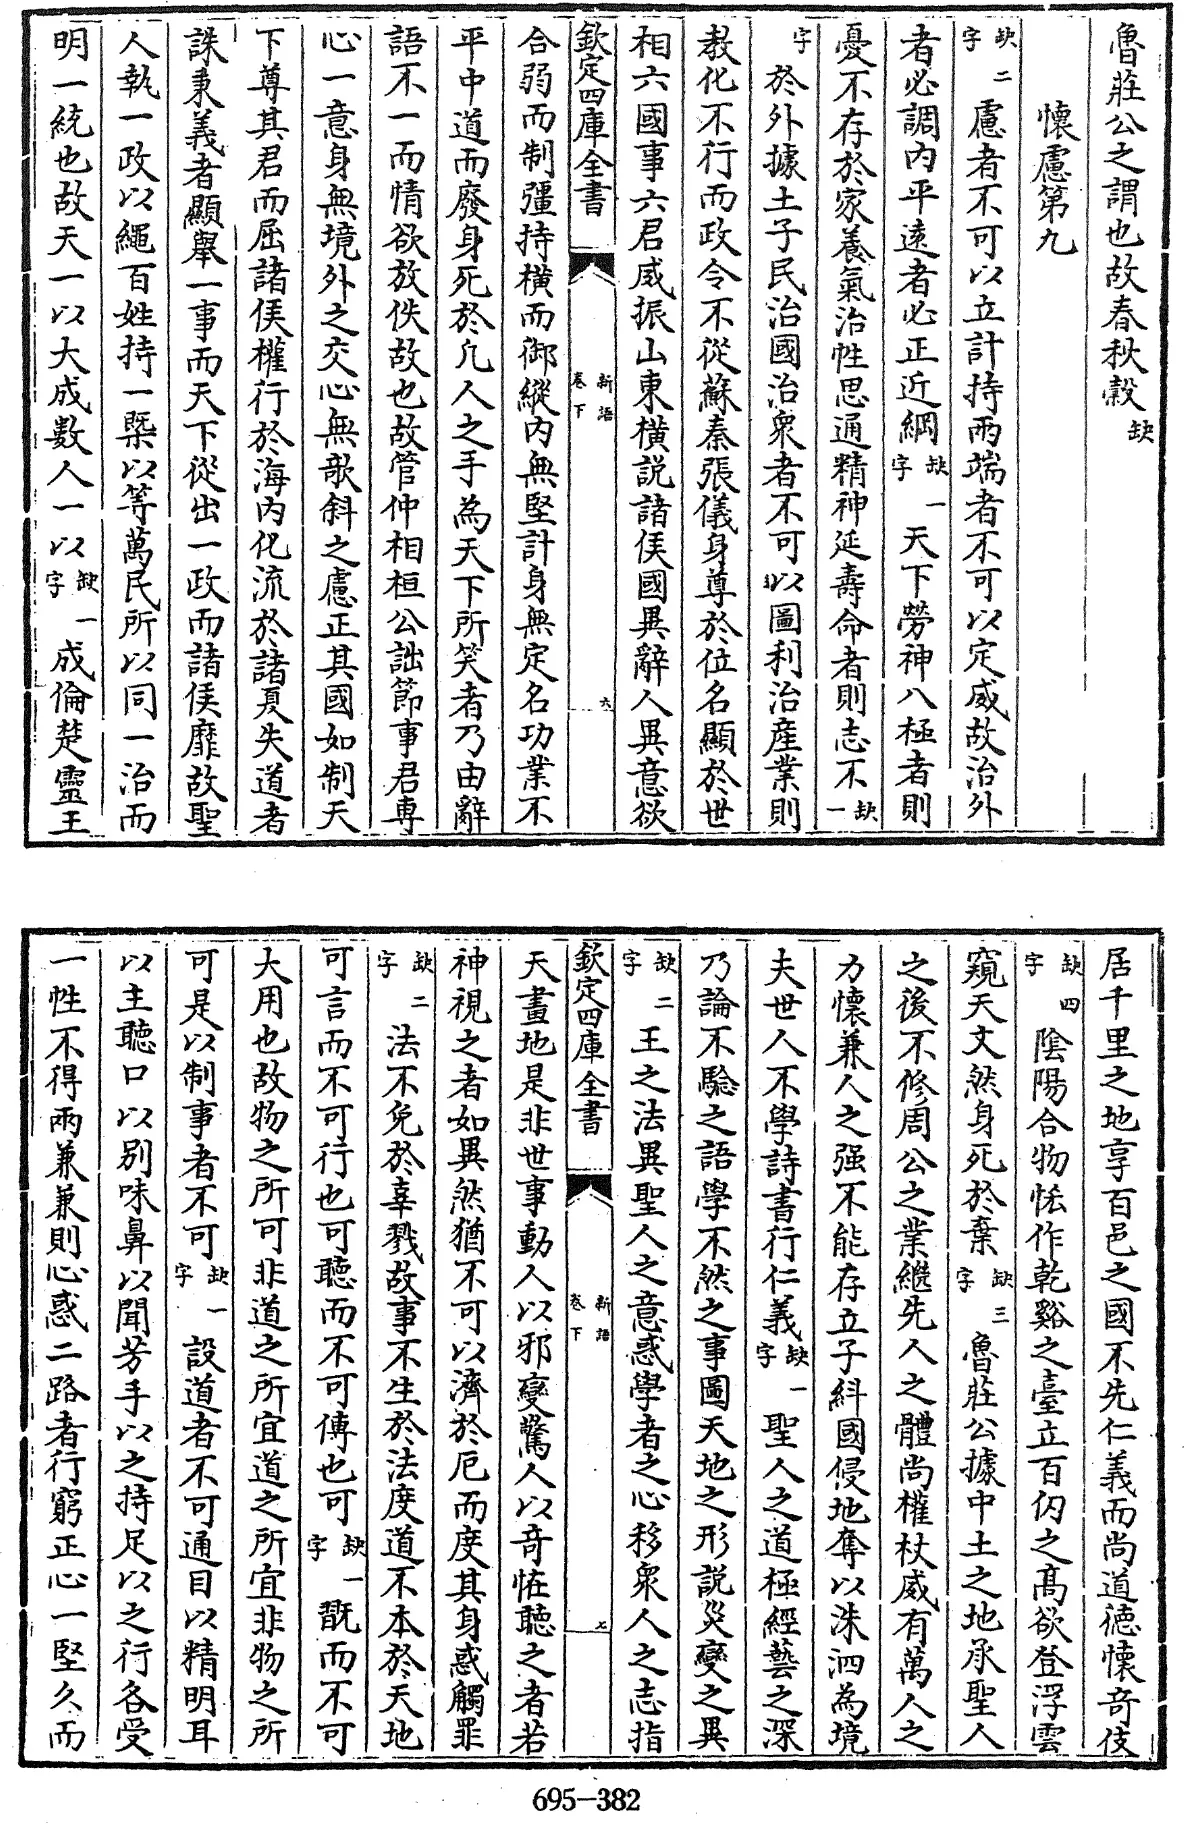 魯莊公之謂也故春秋穀缺
懷慮第九
缺二字慮者不可以立計持兩端者不可以定威故治外
者必調內平遠者必正近綱缺一字天下勞神八極者則
憂不存於家養氣治性思通精神延壽命者則志不缺一
字於外據土子民治國治衆者不可以圖利治産業則
教化不行而政令不從蘇秦張儀身尊於位名顯於世
相六國事六君威振山東橫説諸侯國異辭人異意欲
欽定四庫全書
新語
卷下
六
合弱而制彊持橫而御縱内無堅計身無定名功業不
平中道而廢身死於凡人之手為天下所笑者乃由辭
語不一而情欲放佚故也故管仲相桓公詘節事君専
心一意身無境外之交心無欹斜之慮正其國如制天
下尊其君而屈諸侯權行於海内化流於諸夏失道者
誅秉義者顯舉一事而天下從出一政而諸侯靡故聖
人執一政以繩百姓持一槩以等萬民所以同一治而
明一統也故天一以大成數人一以缺一字成倫楚靈王
居千里之地享百邑之國不先仁義而尚道徳懷奇伎
缺四字隂陽合物怪作乾谿之臺立百仞之髙欲登浮雲
窺天文然身死於棄缺三字魯莊公據中土之地承聖人
之後不修周公之業繼先人之體尚權杖威有萬人之
力懷兼人之强不能存立子糾國侵地奪以洙泗為境
夫世人不學詩書行仁義缺一字聖人之道極經藝之深
乃論不驗之語學不然之事圖天地之形説災變之異
缺二字王之法異聖人之意惑學者之心移衆人之志指
欽定四庫全書
新語
卷下
七
天畫地是非世事動人以邪變驚人以奇怪聽之者若
神視之者如異然猶不可以濟於厄而度其身惑觸罪
缺二字法不免於辜戮故事不生於法度道不本於天地
可言而不可行也可聽而不可傳也可缺一字翫而不可
大用也故物之所可非道之所宜道之所宜非物之所
可是以制事者不可缺一字設道者不可通目以精明耳
以主聽口以別味鼻以聞芳手以之持足以之行各受
一性不得兩兼兼則心惑二路者行窮正心一堅久而
695-382